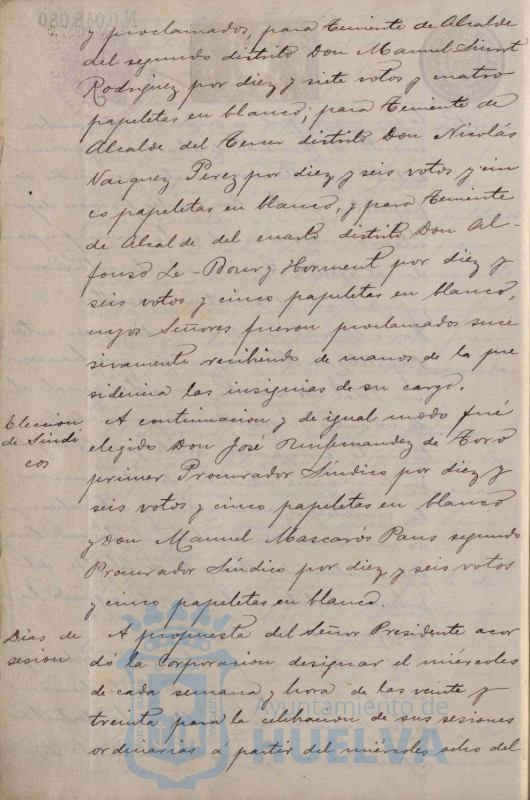 N.0.048.080
y proclamados, para teniente de Alcalde
del segundo distrito Don Manuel
Rodriguez por diez y siete votos y cuatro
papeletas en blanco; para teniente de
Alcalde del tercer distrito Don Nicolás
Vazquez Perez por diez y seis votos y cin
co papeletas en blanco, y para teniente
de Alcalde del cuarto distrito Don Al-
fonso Le-Bourg Horment por diez y
seis votos y cinco papeletas en blanco,
cuyos Señores fueron proclamados suce
sivamente recibiendo de manos de la pre
sidencia las insignias de su cargo.
Eleccion
de Sindi
cos
A continuacion y de igual modo fué
elegido Don José de Toro
primer Procurador Síndico por diez y
seis votos y cinco papeletas en blanco
y Don Manuel Mascarós Pans segundo
Procurador Síndico por diez y seis votos
y cinco papeletas en blanco.
Dias de
sesion
A propuesta del Señor Presidente acor
dó la Corporacion designar el miércoles
de cada semana y hora de las veinte y
treinta para la celebracion de sus sesiones
ordinarias á partir del miércoles ocho del
Ayuntamiento de
HUELVA